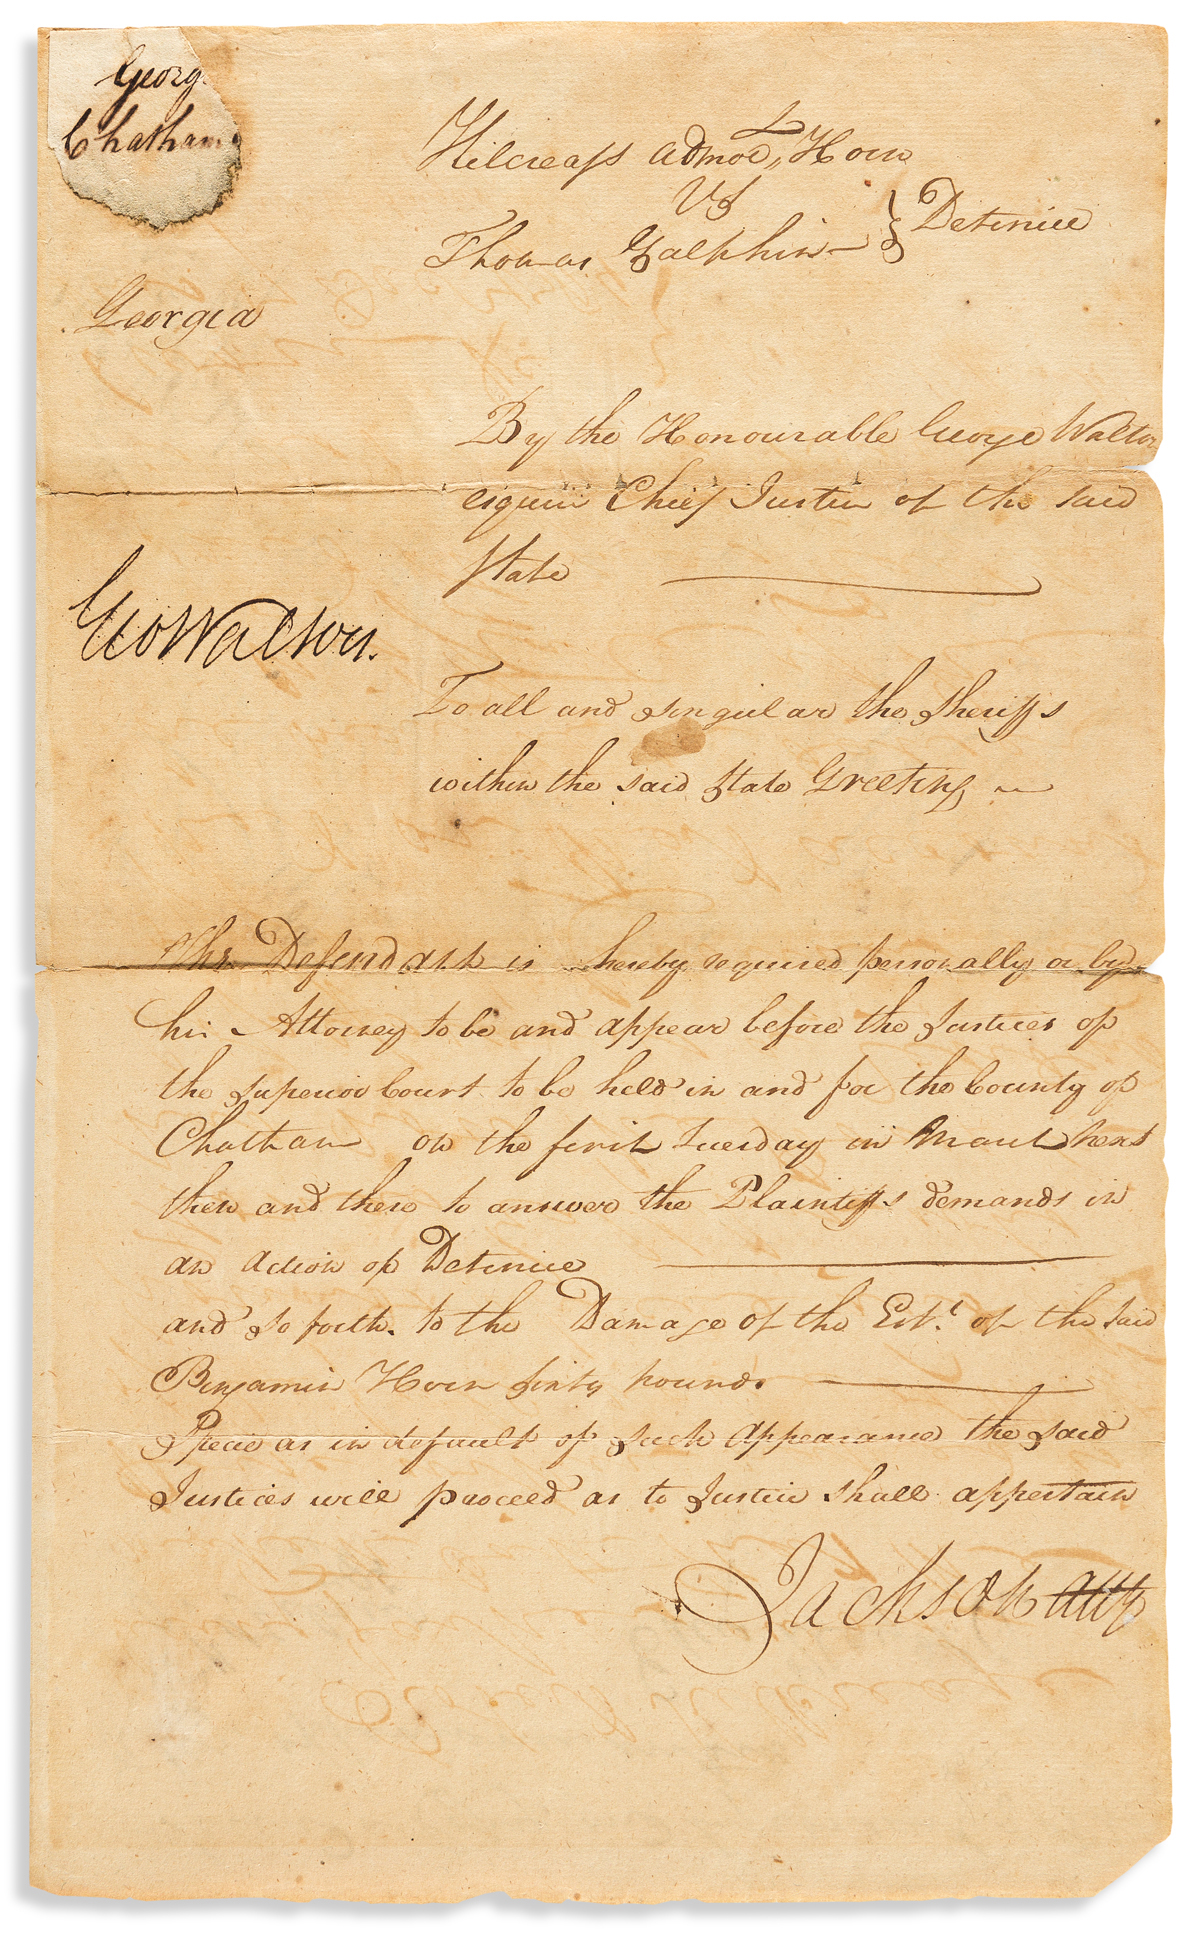 Georg
Chatham
Hilcreass admor, Horn
VS
Thomas Galphin } Detinue
Georgia
By the Honourable George Walton
esquire Chief Justice of the said
State
Geo Walton.
To all and singular the Sheriffs
within the said State Greeting
The Defendant is hereby required personally or by
his Attorney to be and appear before the Justices of
the Superior Court to be held in and for the County of
Chatham on the first Tuesday in March next
then and there to answer the Plaintiffs demands in
an action of Detinue
and so forth. to the Damage of the Est.t of the said
Benjamin Horn sixty pounds
Specie as in default of such Appearance the said
Justices will proceed as to Justice shall appertain
Jackson atty